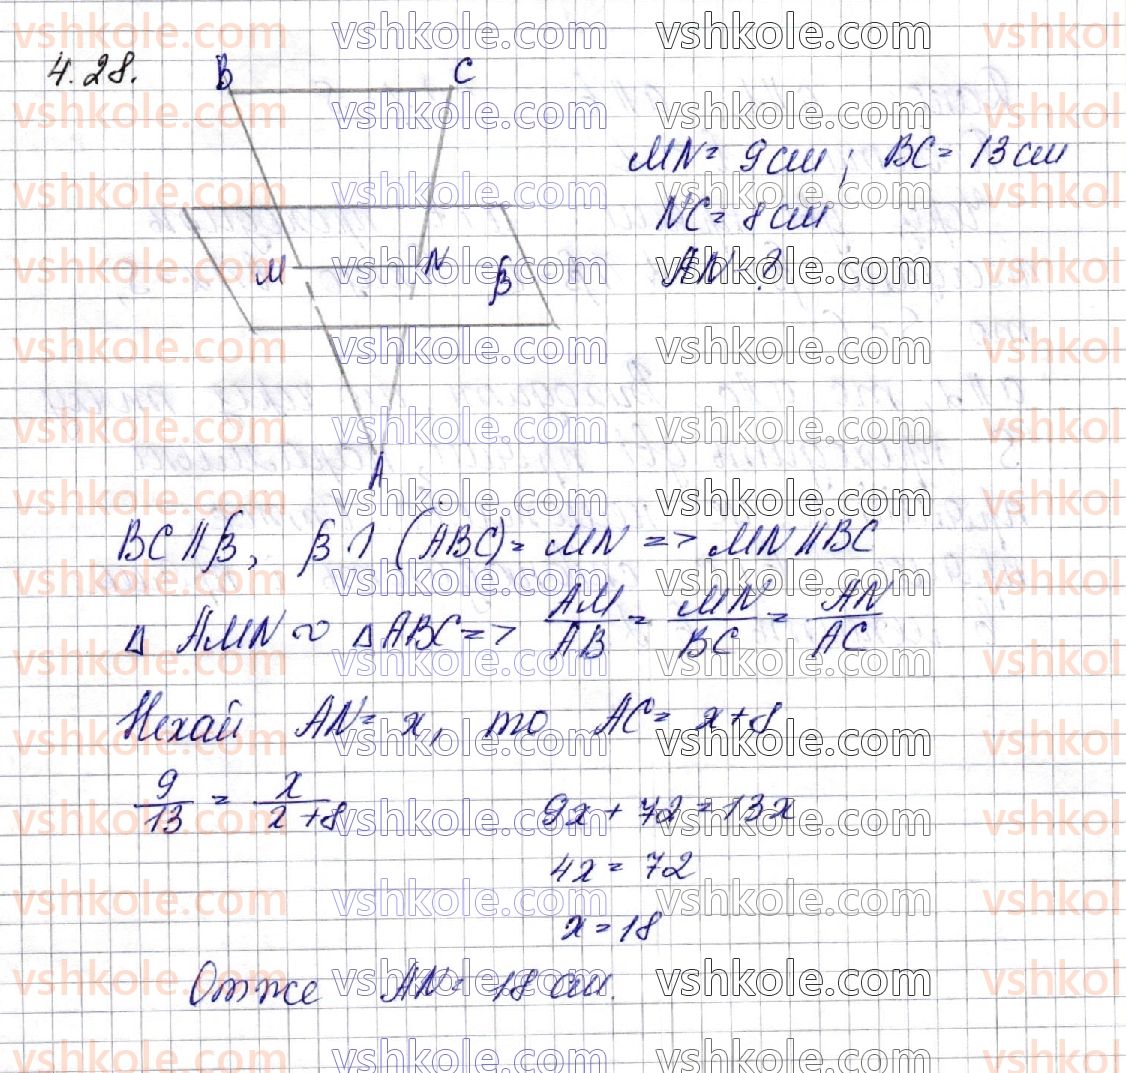 4.28.
B C
MN = 9 см ; BC = 13 см
NC = 8 см
AN - ?
M N β
A
BC ∥ β, β ∩ (ABC) = MN => MN ∥ BC
Δ AMN ∾ Δ ABC => AM/AB = MN/BC = AN/AC
Нехай AN = x, то AC = x+8
9/13 = x/x+8
9x + 72 = 13x
4x = 72
x = 18
Отже AN = 18 см.
vshkole.com